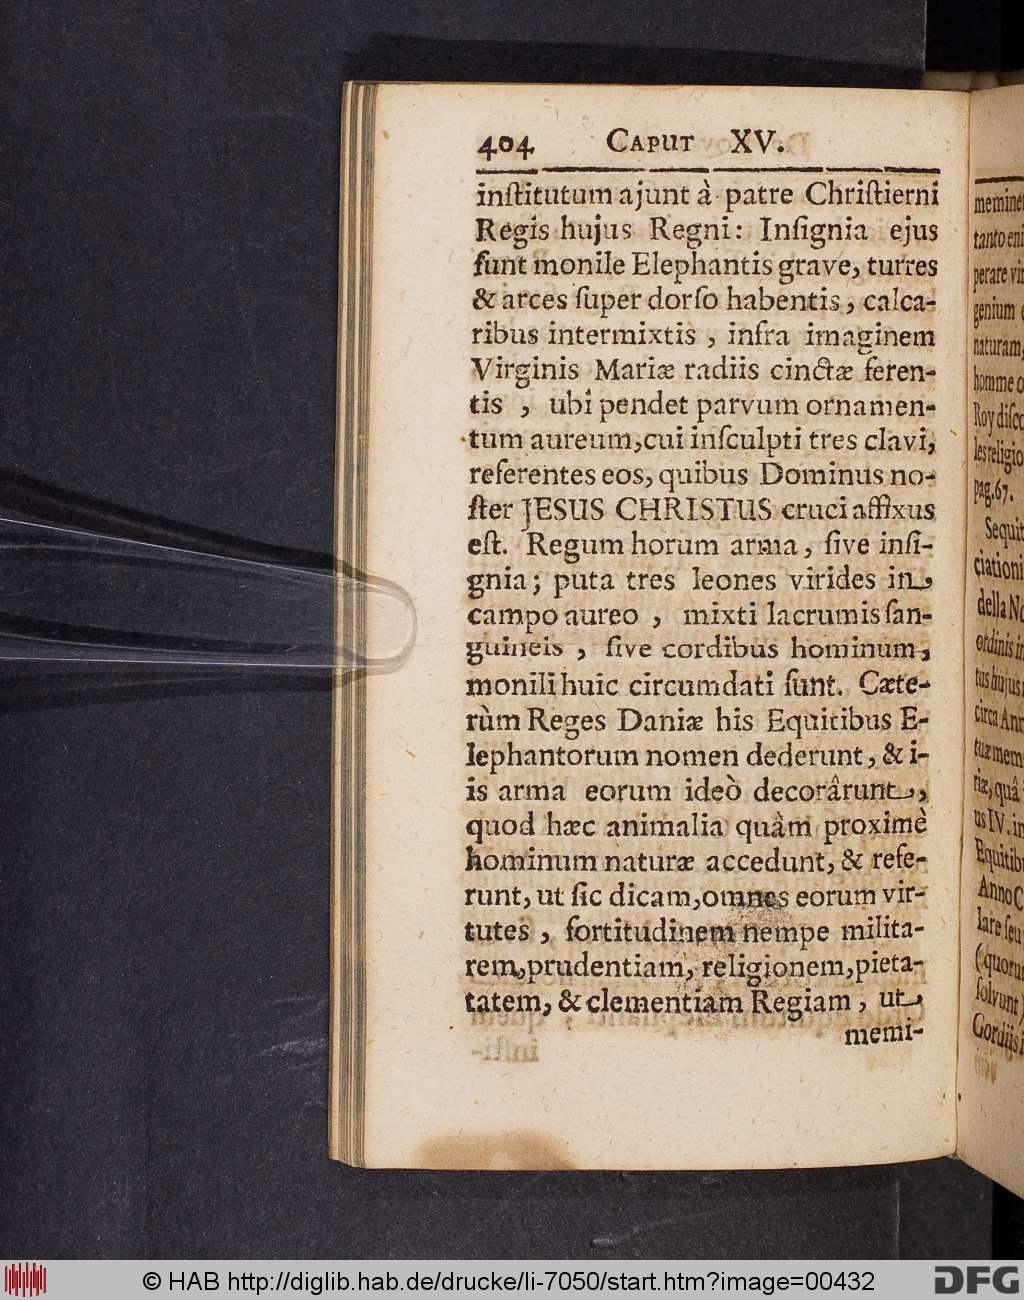 404 CAPUT XV.
inſtitutum ajunt à patre Chriſtierni
Regis hujus Regni: Inſignia ejus
ſunt monile Elephantis grave, turres
& arces ſuper dorſo habentis, calca-
ribus intermixtis , infra imaginem
Virginis Mariæ radiis cinctæ feren-
tis , ubi pendet parvum ornamen-
tum aureum,cui inſculpti tres clavi,
referentes eos, quibus Dominus no-
ſter JESUS CHRISTUS cruci affixus
eſt. Regum horum arma, ſive inſi-
gnia; puta tres leones virides in
campo aureo , mixti lacrumis ſan-
guineis , ſive cordibus hominum,
monili huic circumdati ſunt. Cæte-
rùm Reges Daniæ his Equitibus E-
lephantorum nomen dederunt, & i-
is arma eorum ideò decorârunt,
quod hæc animalia quàm proximè
hominum naturæ accedunt, & refe-
runt, ut ſic dicam,omnes eorum vir-
tutes , fortitudinem nempe milita-
rem,prudentiam, religionem,pieta-
tatem, & clementiam Regiam , ut
memi-
tanto eni
perare vi
genium
naturam,
homme o
Roy diſc
les religio
pag.67.
Sequit
ciationi
della N
ordinis i
tus hujus
circa Ann
tuæ mem
riæ, quâ
us IV. in
Equitib
Anno
lare ſeu
(quoru
ſolvunt
Gordiis
© HAB http://diglib.hab.de/drucke/li-7050/start.htm?image=00432
DFG